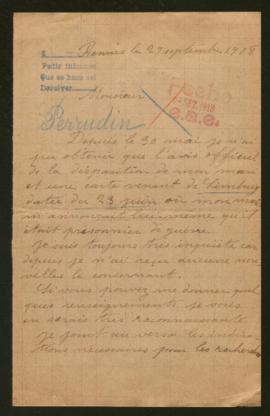 Rennes le 27 septembre 1918
Pedir informes
Que se hace así
Devolver
Fecho
SEZ. 1918
Monsieur
Perrudin
Depuis le 30 mai je n'ai
pu obtenir que l'avis officiel
de la disparition de mon mari
et une carte venant de Limburg
datée du 23 juin où mon mari
m'annonçait lui-même qu'il
était prisonnier de guerre.
Je suis toujours très inquiète car
depuis je n'ai reçu aucune nou
velles le concernant.
Si vous pouvez me donner quel
ques renseignements je vous
en serais très reconnaissante.
Je joint au verso les indica
tions nécessaires pour les recherches